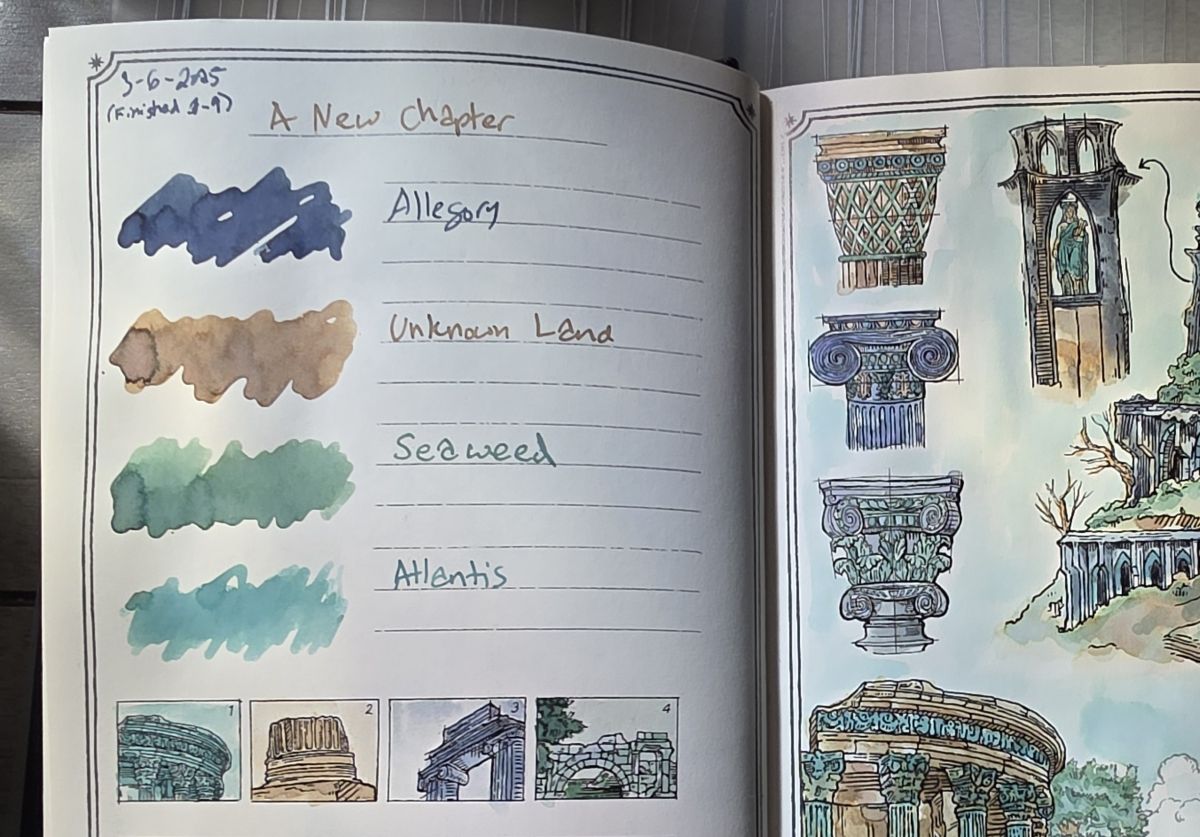 3-6-2025
(Finished 3-9)
A New Chapter
Allegory
Unknown Land
Seaweed
Atlantis
1
2
3
4